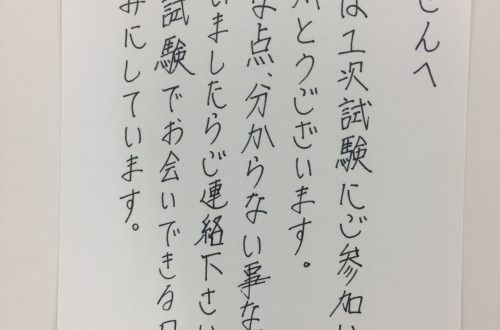 さんへ
は1次試験にご参加い
とうございます。
な点、分からない事な
いましたらご連絡下さい
試験でお会いできる
みにしています。